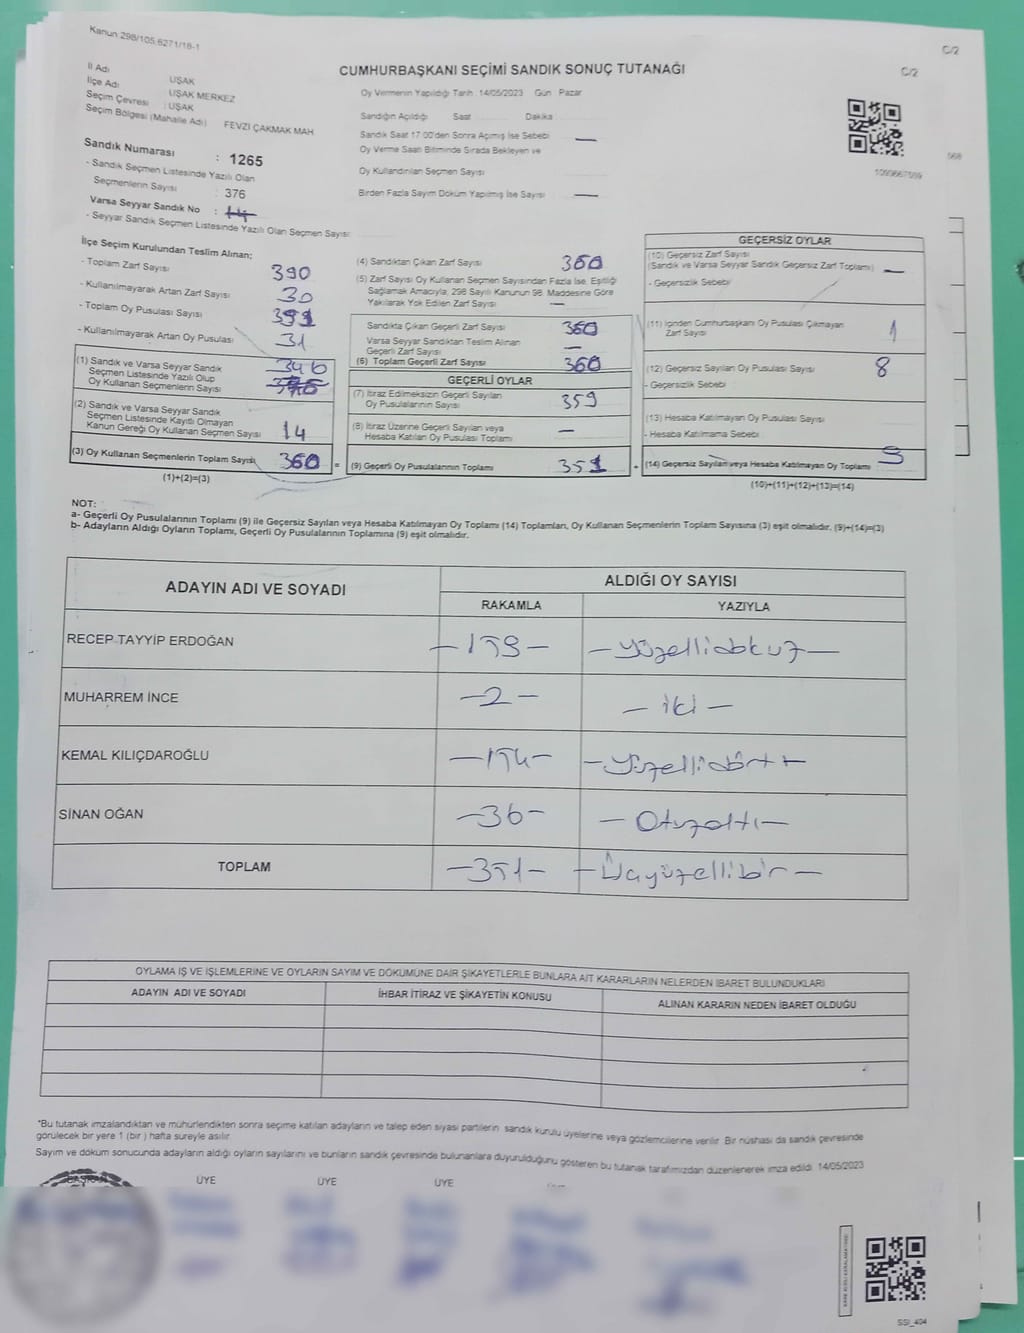 Kanun 298/105,6271/18-1
C/2
C/2
CUMHURBAŞKANI SEÇİMİ SANDIK SONUÇ TUTANAĞI
İl Adı UŞAK
İlçe Adı UŞAK MERKEZ
Seçim Çevresi : UŞAK
Seçim Bölgesi (Mahalle Adı) FEVZİ ÇAKMAK MAH
Sandık Numarası : 1265
- Sandık Seçmen Listesinde Yazılı Olan
Seçmenlerin Sayısı : 376
Varsa Seyyar Sandık No :
- Seyyar Sandık Seçmen Listesinde Yazılı Olan Seçmen Sayısı
Oy Vermenin Yapıldığı Tarih : 14/05/2023 Gün Pazar
Sandığın Açıldığı Saat Dakika
Sandık Saat 17:00'den Sonra Açılmış İse Sebebi —
Oy Verme Saati Bitiminde Sırada Bekleyen ve
Oy Kullandırılan Seçmen Sayısı
Birden Fazla Sayım Döküm Yapılmış İse Sayısı —
1090667559
568
İlçe Seçim Kurulundan Teslim Alınan:
- Toplam Zarf Sayısı 390
- Kullanılmayarak Artan Zarf Sayısı 30
- Toplam Oy Pusulası Sayısı 391
- Kullanılmayarak Artan Oy Pusulası 31
(1) Sandık ve Varsa Seyyar Sandık
Seçmen Listesinde Yazılı Olup
Oy Kullanan Seçmenlerin Sayısı 346
(2) Sandık ve Varsa Seyyar Sandık
Seçmen Listesinde Kayıtlı Olmayan
Kanun Gereği Oy Kullanan Seçmen Sayısı 14
(3) Oy Kullanan Seçmenlerin Toplam Sayısı 360 =
(1)+(2)=(3)
(4) Sandıktan Çıkan Zarf Sayısı 360
(5) Zarf Sayısı Oy Kullanan Seçmen Sayısından Fazla İse, Eşitliği
Sağlamak Amacıyla, 298 Sayılı Kanunun 98. Maddesine Göre
Yakılarak Yok Edilen Zarf Sayısı —
Sandıkta Çıkan Geçerli Zarf Sayısı 360
Varsa Seyyar Sandıktan Teslim Alınan
Geçerli Zarf Sayısı —
(6) Toplam Geçerli Zarf Sayısı 360
GEÇERLİ OYLAR
(7) İtiraz Edilmeksizin Geçerli Sayılan
Oy Pusulalarının Sayısı 359
(8) İtiraz Üzerine Geçerli Sayılan veya
Hesaba Katılan Oy Pusulası Toplamı —
(9) Geçerli Oy Pusulalarının Toplamı 351 +
GEÇERSİZ OYLAR
(10) Geçersiz Zarf Sayısı
(Sandık ve Varsa Seyyar Sandık Geçersiz Zarf Toplamı) —
- Geçersizlik Sebebi
(11) İçinden Cumhurbaşkanı Oy Pusulası Çıkmayan
Zarf Sayısı 1
(12) Geçersiz Sayılan Oy Pusulası Sayısı 8
- Geçersizlik Sebebi
(13) Hesaba Katılmayan Oy Pusulası Sayısı
- Hesaba Katılmama Sebebi
(14) Geçersiz Sayılan veya Hesaba Katılmayan Oy Toplamı 9
(10)+(11)+(12)+(13)=(14)
NOT:
a- Geçerli Oy Pusulalarının Toplamı (9) ile Geçersiz Sayılan veya Hesaba Katılmayan Oy Toplamı (14) Toplamları, Oy Kullanan Seçmenlerin Toplam Sayısına (3) eşit olmalıdır. (9)+(14)=(3)
b- Adayların Aldığı Oyların Toplamı, Geçerli Oy Pusulalarının Toplamına (9) eşit olmalıdır.
ADAYIN ADI VE SOYADI ALDIĞI OY SAYISI
RAKAMLA YAZIYLA
RECEP TAYYİP ERDOĞAN -159- -yüzellidokuz-
MUHARREM İNCE -2- -iki-
KEMAL KILIÇDAROĞLU -154- -yüzellidört-
SİNAN OĞAN -36- -Otuzaltı-
TOPLAM -351- -Üçyüzellibir-
OYLAMA İŞ VE İŞLEMLERİNE VE OYLARIN SAYIM VE DÖKÜMÜNE DAİR ŞİKAYETLERLE BUNLARA AİT KARARLARIN NELERDEN İBARET BULUNDUKLARI
ADAYIN ADI VE SOYADI İHBAR İTİRAZ VE ŞİKAYETİN KONUSU ALINAN KARARIN NEDEN İBARET OLDUĞU
*Bu tutanak imzalandıktan ve mühürlendikten sonra seçime katılan adayların ve talep eden siyasi partilerin sandık kurulu üyelerine veya gözlemcilerine verilir. Bir nüshası da sandık çevresinde
görülecek bir yere 1 (bir ) hafta süreyle asılır.
Sayım ve döküm sonucunda adayların aldığı oyların sayılarını ve bunların sandık çevresinde bulunanlara duyurulduğunu gösteren bu tutanak tarafımızdan düzenlenerek imza edildi. 14/05/2023
BAŞKAN ÜYE ÜYE ÜYE
SSI_404